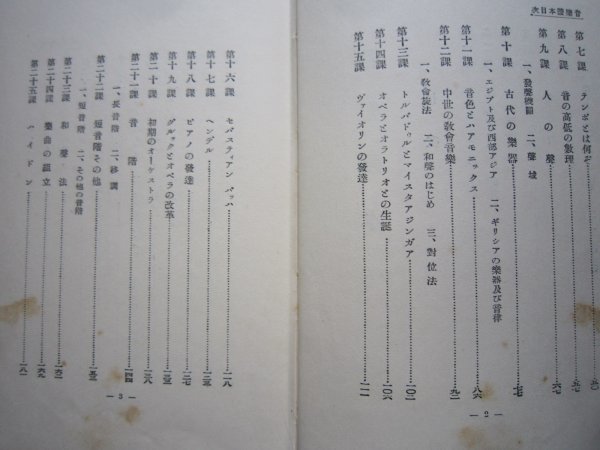 音樂讀本目次
第七課　テンポとは何ぞ
第八課　音の高低の數理
第九課　人の聲
一、發聲機關　二、聲域
第十課　古代の樂器
一、エジプト及び西部アジア　二、ギリシアの樂器及び音律
第十一課　音色とハアモニックス
第十二課　中世の敎會音樂
一、敎會旋法　二、和聲のはじめ　三、對位法
第十三課　トルバドゥルとマイスタアジンガア
第十四課　オペラとオラトリオとの生誕
第十五課　ヴァイオリンの發達
— 2 —
第十六課　セバスティアン　バッハ　一一八
第十七課　ヘンデル
第十八課　ピアノの發達　一二七
第十九課　グルックとオペラの改革
第二十課　初期のオーケストラ　一三八
第二十一課　音階　一四四
一、長音階　二、移調
第二十二課　短音階その他　一五三
一、短音階　二、その他の音階
第二十三課　和聲法
第二十四課　樂曲の組立　一六九
第二十五課　ハイドン　一八一
— 3 —